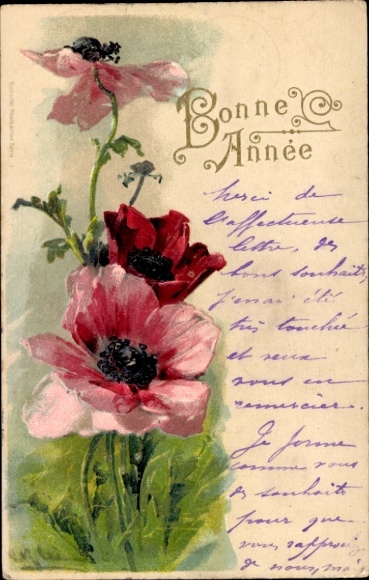 Bonne
Année
Merci de
l'affectueuse
lettre, des
bons souhaits,
j'en ai été
très touchée
et veux
vous en
remercier.
Je forme
comme vous
des souhaits
pour que
vous
de nous,